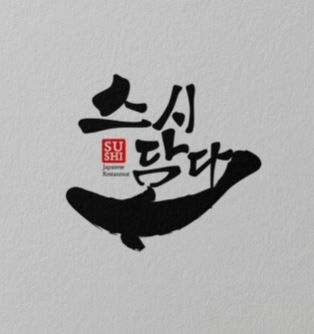 스시
SU
SHI
담다
Japanese
Restaurant